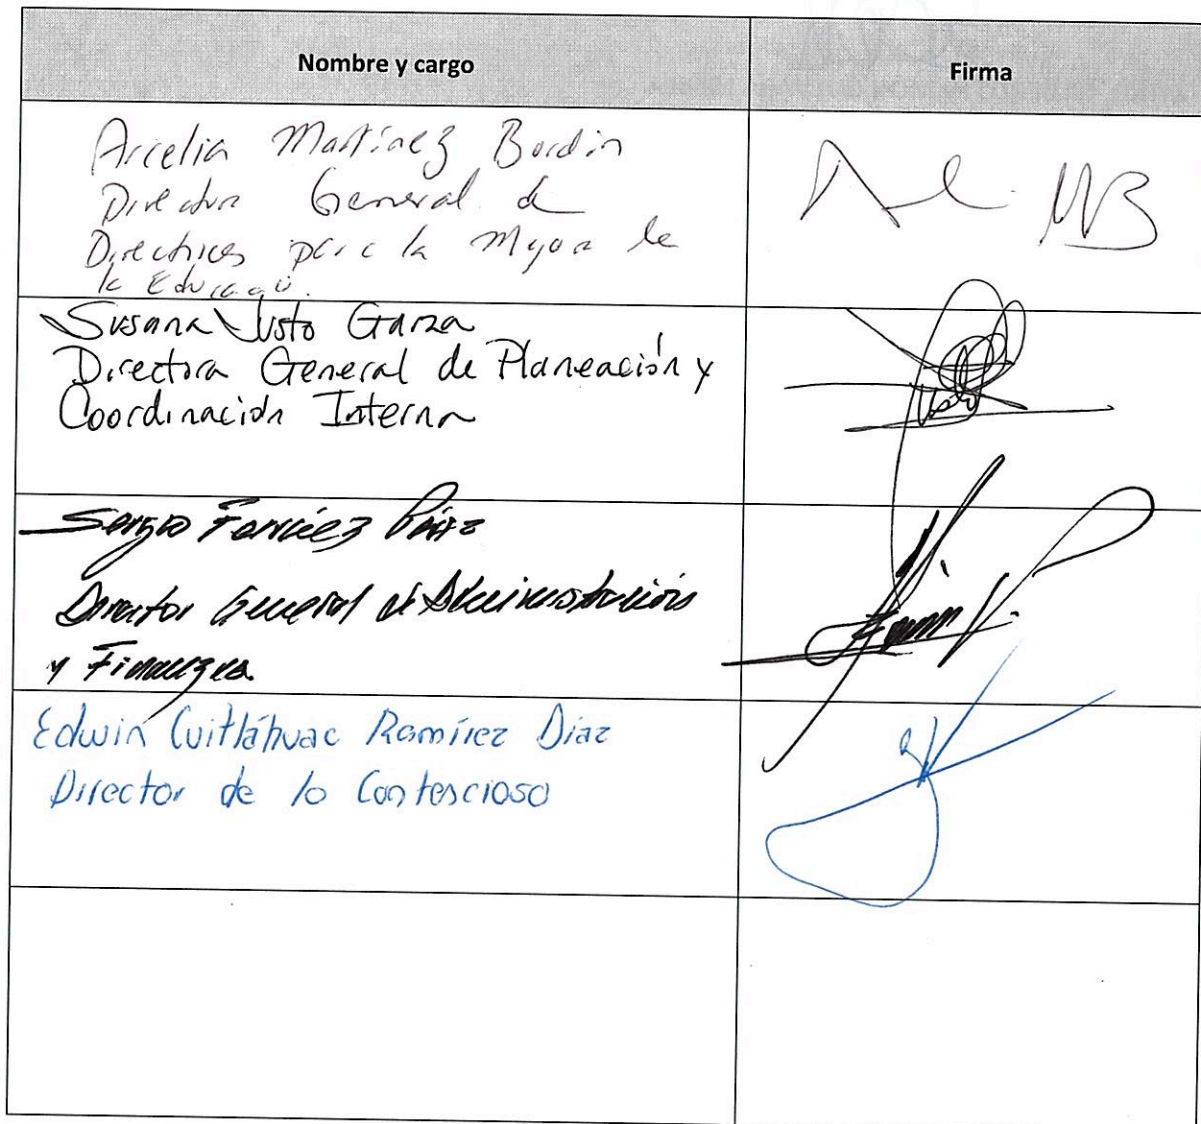 Nombre y cargo
Firma
Arcelia Martínez Bordón
Directora General de
Directrices para la Mejora de
la Educació.
MB
Susana Justo Garza
Directora General de Planeación y
Coordinación Interna
Justo
Sergio
Director General de Administración
y Finanzas
Edwin Cuitláhuac Ramírez Díaz
Director de lo Contescioso